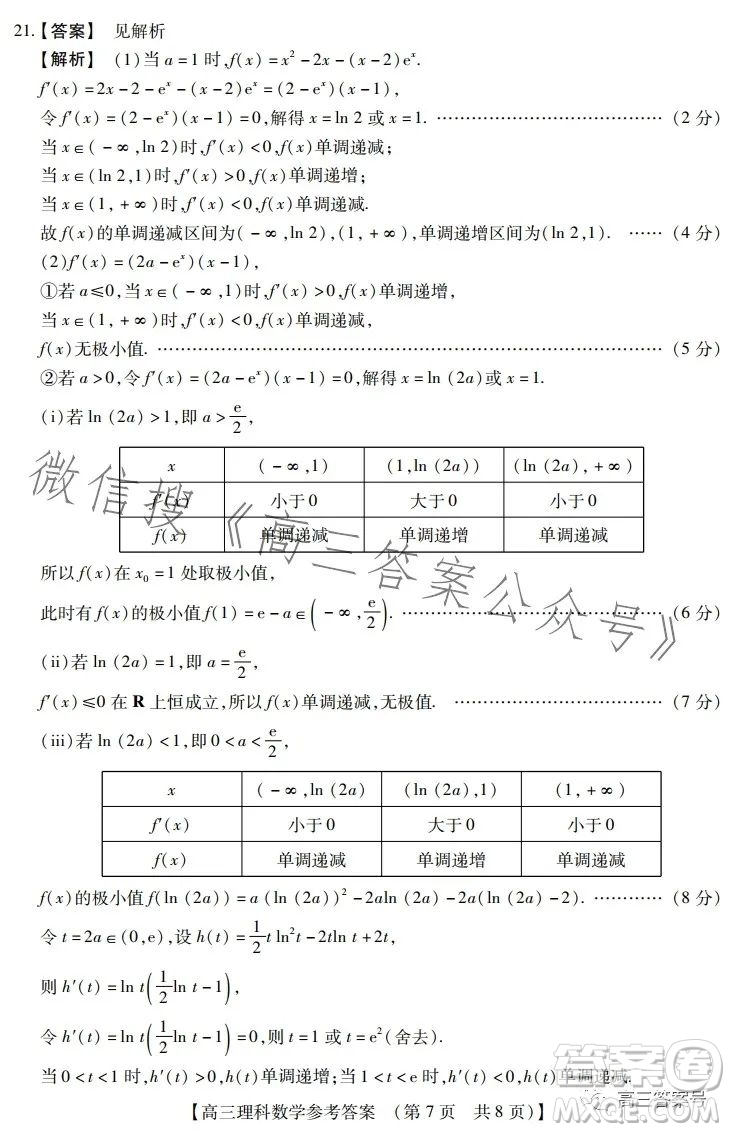 21.【答案】 见解析
【解析】 (1)当 a=1 时,f(x)=x²-2x-(x-2)eˣ.
f′(x)=2x-2-eˣ-(x-2)eˣ=(2-eˣ)(x-1),
令 f′(x)=(2-eˣ)(x-1)=0,解得 x=ln 2 或 x=1. …………………………………(2 分)
当 x∈(-∞,ln 2)时,f′(x)<0,f(x)单调递减;
当 x∈(ln 2,1)时,f′(x)>0,f(x)单调递增;
当 x∈(1,+∞)时,f′(x)<0,f(x)单调递减.
故 f(x)的单调递减区间为(-∞,ln 2),(1,+∞),单调递增区间为(ln 2,1). ……(4 分)
(2)f′(x)=(2a-eˣ)(x-1),
①若 a≤0,当 x∈(-∞,1)时,f′(x)>0,f(x)单调递增,
当 x∈(1,+∞)时,f′(x)<0,f(x)单调递减,
f(x)无极小值. …………………………………………………………(5 分)
②若 a>0,令 f′(x)=(2a-eˣ)(x-1)=0,解得 x=ln (2a)或 x=1.
(i)若 ln (2a)>1,即 a>e/2,
x (-∞,1) (1,ln (2a)) (ln (2a),+∞)
f′(x) 小于 0 大于 0 小于 0
f(x) 单调递减 单调递增 单调递减
所以 f(x)在 x₀=1 处取极小值,
此时有 f(x)的极小值 f(1)=e-a∈(-∞,e/2). …………………………(6 分)
(ii)若 ln (2a)=1,即 a=e/2,
f′(x)≤0 在 R 上恒成立,所以 f(x)单调递减,无极值. …………………………(7 分)
(iii)若 ln (2a)<1,即 0<a<e/2,
x (-∞,ln (2a) (ln (2a),1) (1,+∞)
f′(x) 小于 0 大于 0 小于 0
f(x) 单调递减 单调递增 单调递减
f(x)的极小值 f(ln (2a))=a (ln (2a))²-2aln (2a)-2a(ln (2a)-2). …………(8 分)
令 t=2a∈(0,e),设 h(t)=1/2 t ln²t-2tln t+2t,
则 h′(t)=ln t(1/2 ln t-1),
令 h′(t)=ln t(1/2 ln t-1)=0,则 t=1 或 t=e²(舍去).
当 0<t<1 时,h′(t)>0,h(t)单调递增;当 1<t<e 时,h′(t)<0,h(t)单调递减.
【高三理科数学参考答案 (第 7 页 共 8 页)】
微信搜《高三答案公众号》
答案卷
高三答案号